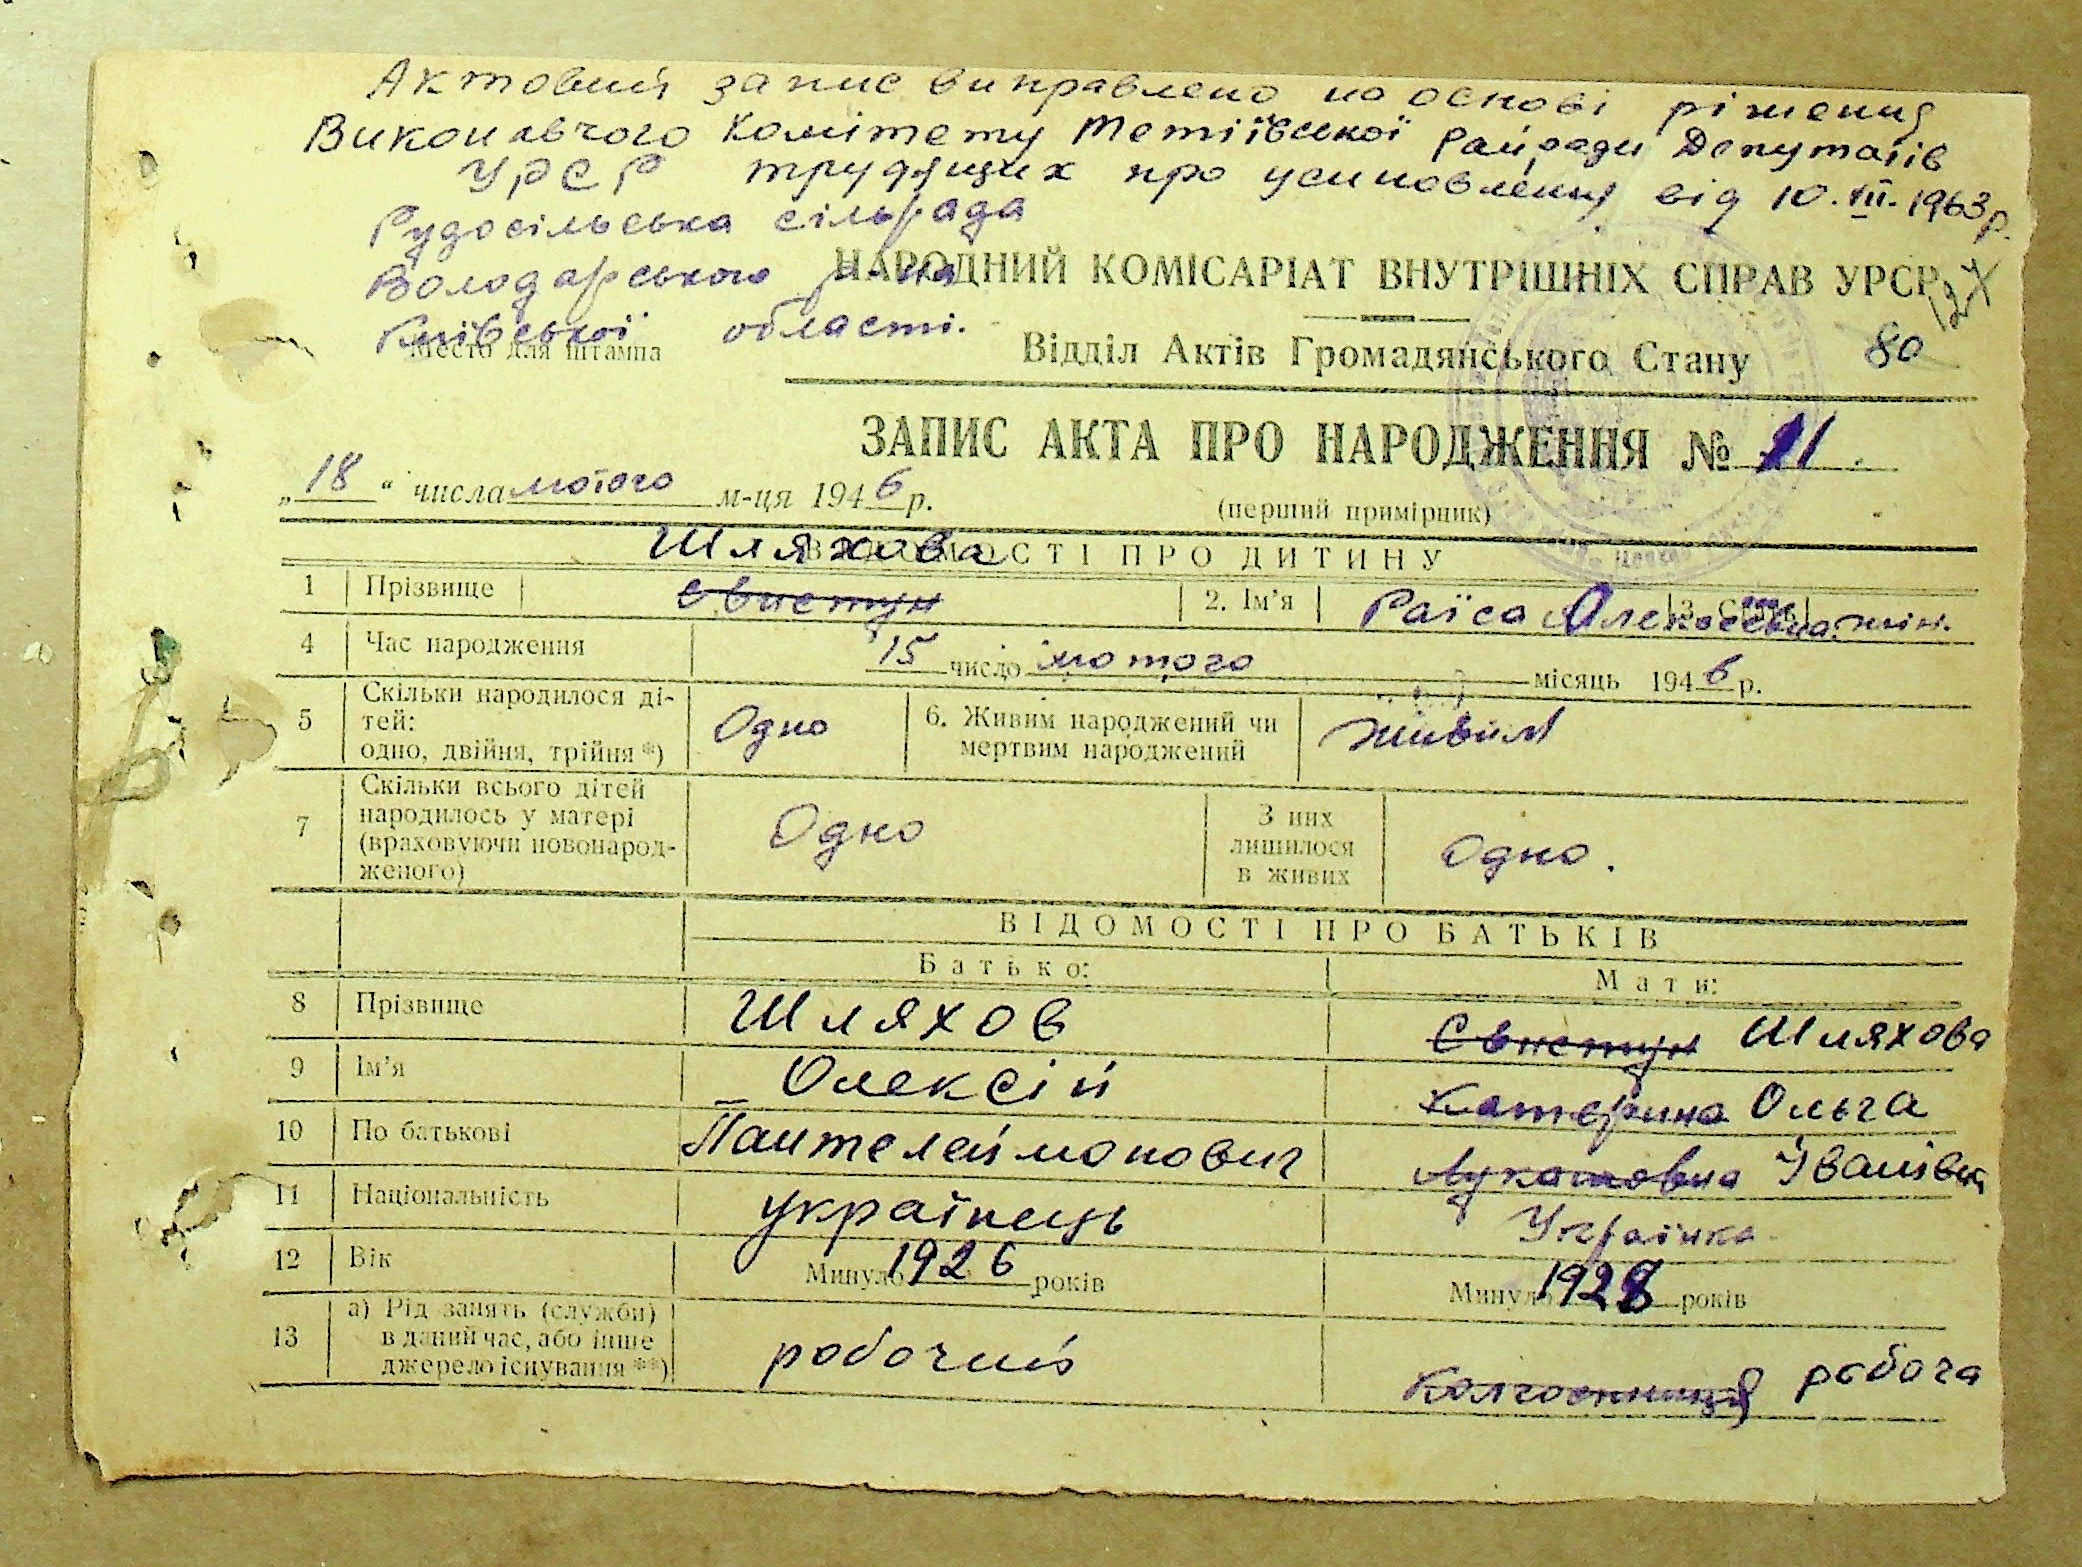 Актовий запис виправлено на основі рішення
Виконавчого Комітету Тетіївської Райради Депутатів
трудящих про усиновлення від 10.VII.1963р.
УРСР
Рудосільська сільрада
Володарського р-на
Київської області.
НАРОДНИЙ КОМІСАРІАТ ВНУТРІШНІХ СПРАВ УРСР
Место для штампа
Відділ Актів Громадянського Стану
80
ЗАПИС АКТА ПРО НАРОДЖЕННЯ № 11.
„18“ числа лютого м-ця 1946 р.
(перший примірник)
Шляхова
ВІДОМОСТІ ПРО ДИТИНУ
1 Прізвище Свистун 2. Ім'я Раїса Олексіївна 3. Стать жін.
4 Час народження 15 число лютого місяць 1946 р.
5 Скільки народилося ді-
тей:
одно, двійня, трійня *) Одно 6. Живим народжений чи
мертвим народжений живим
7 Скільки всього дітей
народилось у матері
(враховуючи новонарод-
женого) Одно З них
лишилося
в живих Одно.
ВІДОМОСТІ ПРО БАТЬКІВ
Батько: Мати:
8 Прізвище Шляхов Свистун Шляхова
9 Ім'я Олексій Катерина Ольга
10 По батькові Пантелеймонович Іванівна
11 Національність українець Українка
12 Вік Минуло 1926 років Минуло 1928 років
13 а) Рід занять (служби)
в даний час, або інше
джерело існування **) робочий Колгоспниця робоча